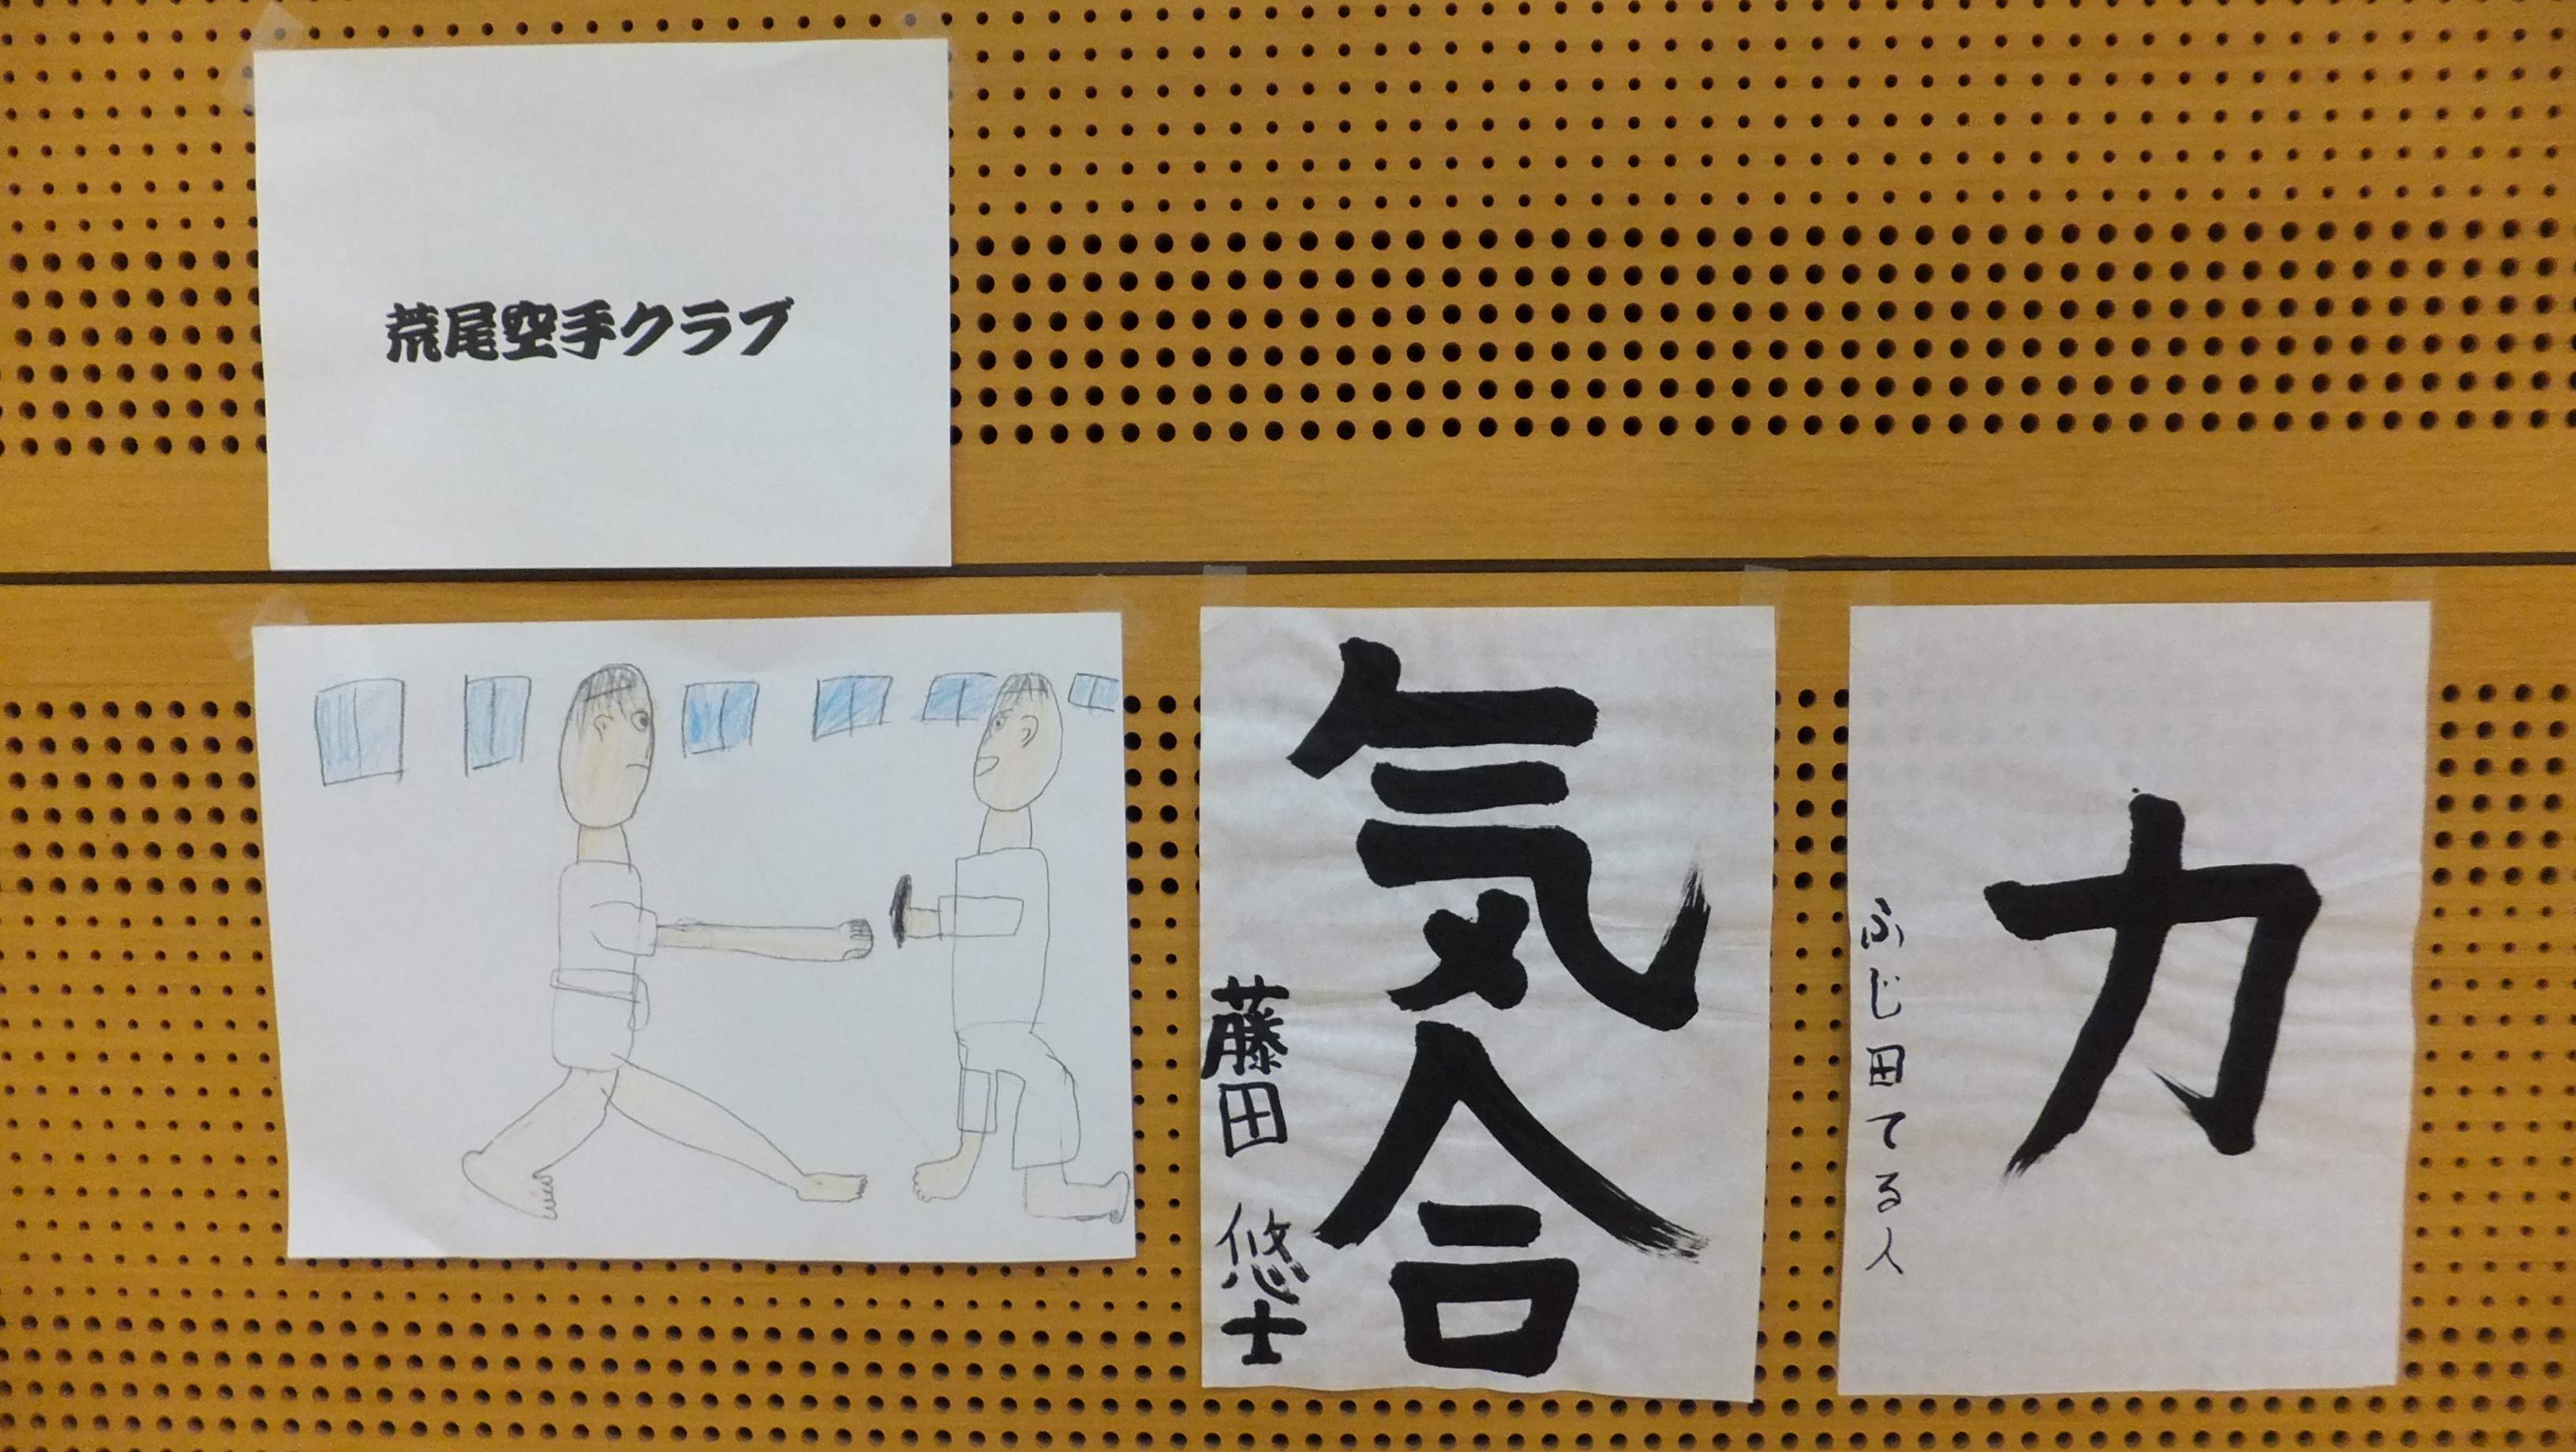 荒尾空手クラブ
気合
藤田 悠士
力
ふじ田てる人